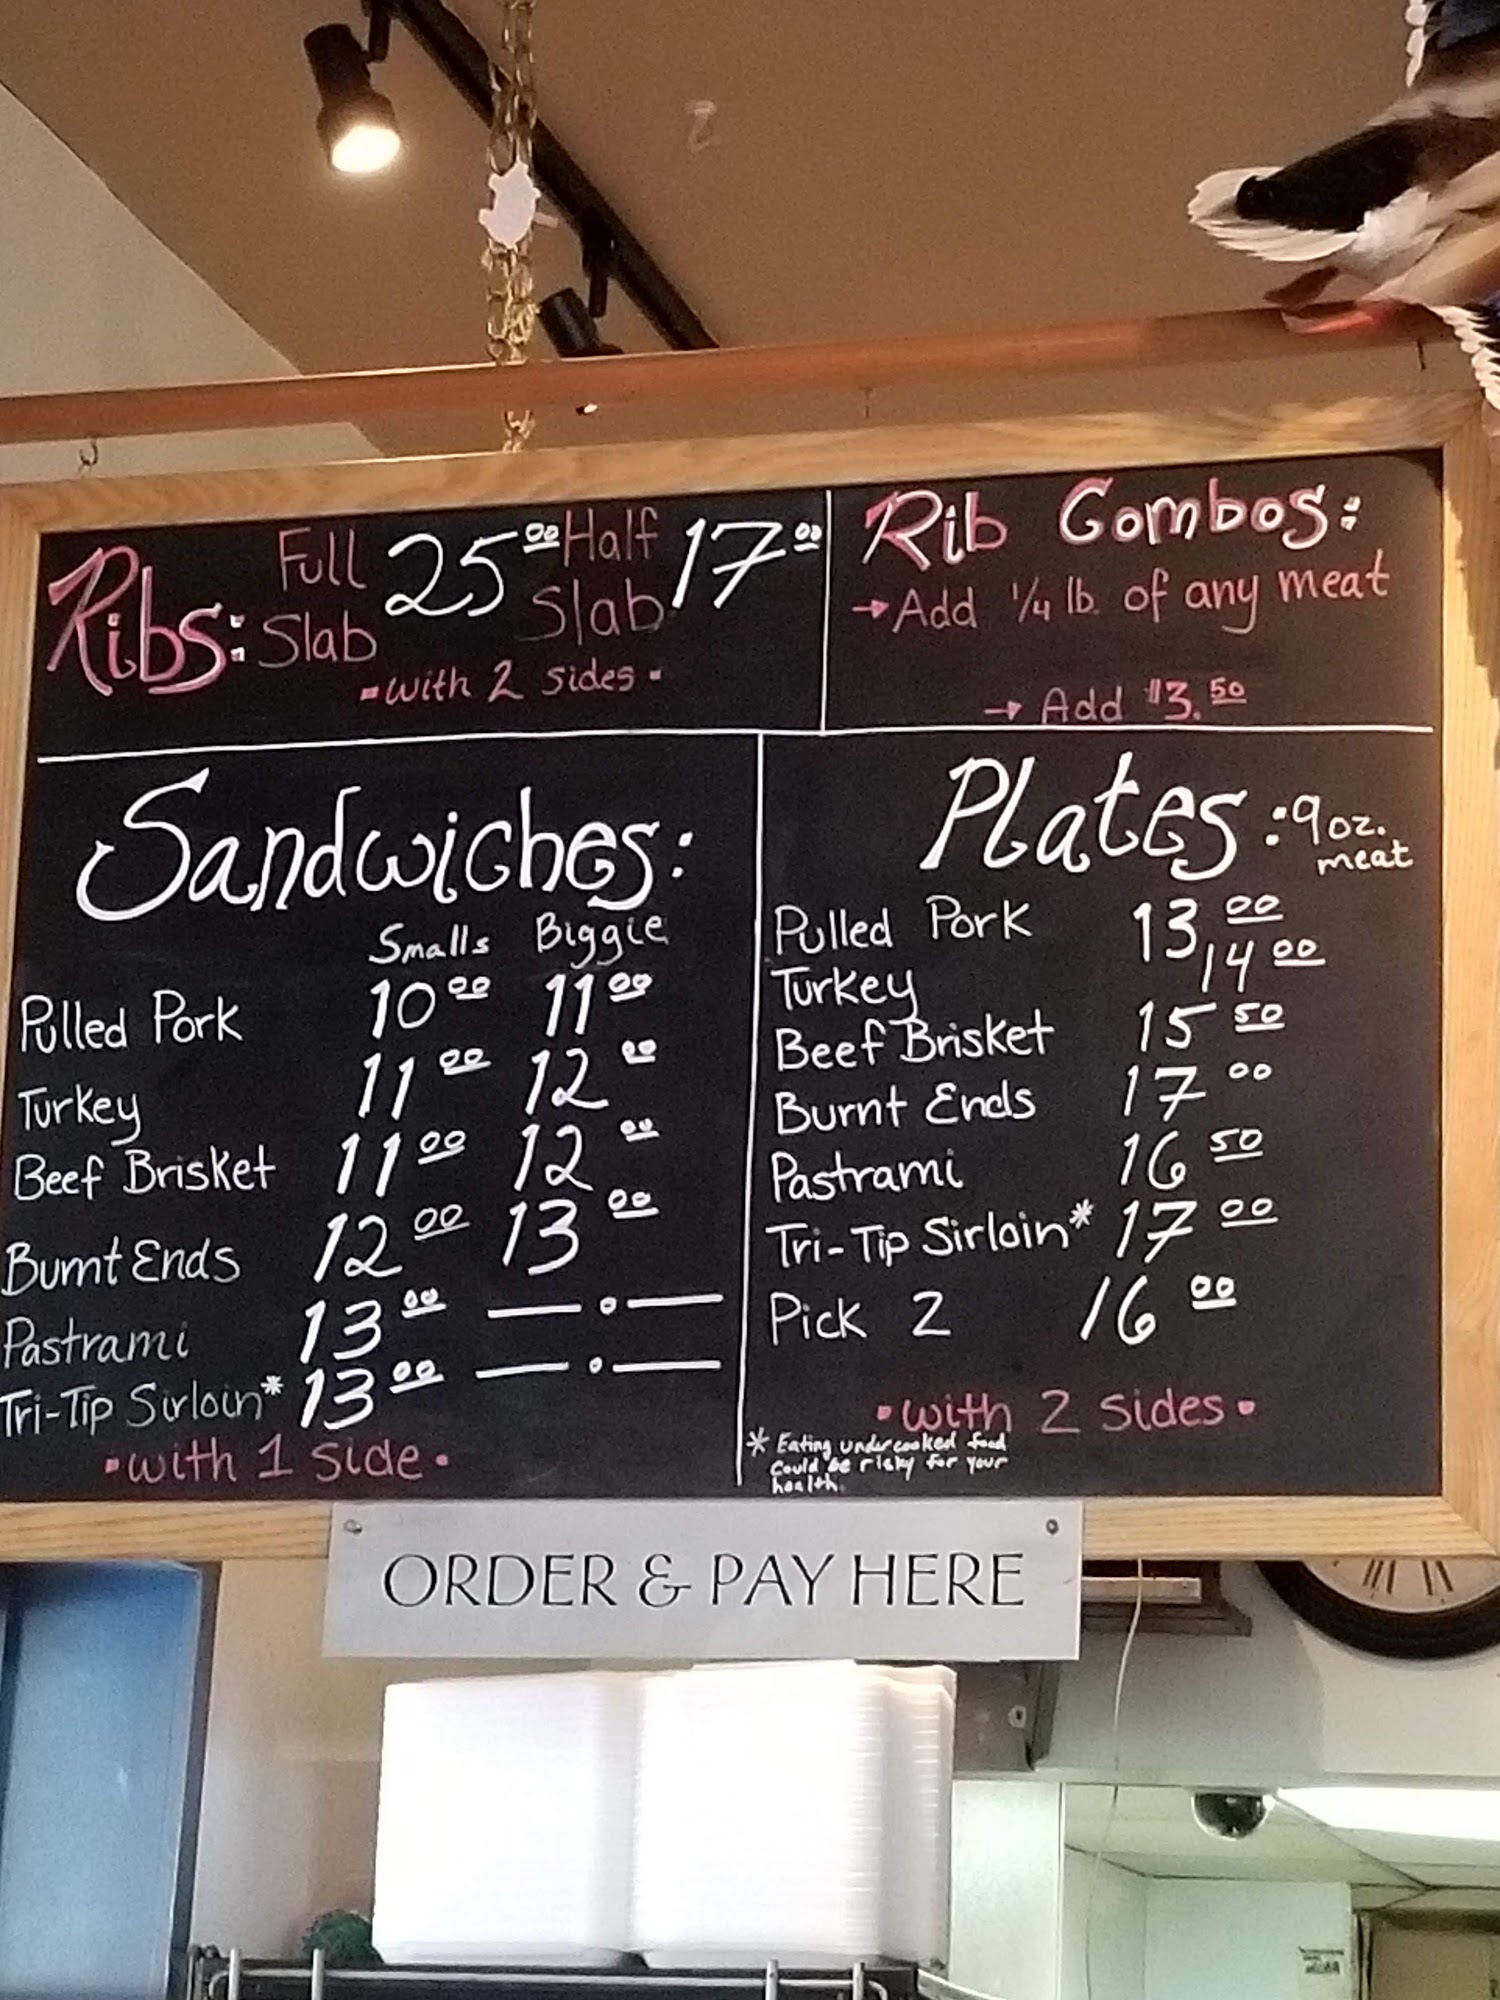 Ribs: Full Slab 25.00 Half Slab 17.00
with 2 sides
Rib Combos:
→ Add 1/4 lb. of any meat
→ Add $3.50
Sandwiches:
Smalls Biggie
Pulled Pork 10.00 11.00
Turkey 11.00 12.00
Beef Brisket 11.00 12.00
Burnt Ends 12.00 13.00
Pastrami 13.00
Tri-Tip Sirloin* 13.00
with 1 side
Plates: 9 oz. meat
Pulled Pork 13.00
Turkey 14.00
Beef Brisket 15.50
Burnt Ends 17.00
Pastrami 16.50
Tri-Tip Sirloin* 17.00
Pick 2 16.00
with 2 sides
* Eating undercooked food
could be risky for your
health.
ORDER & PAY HERE